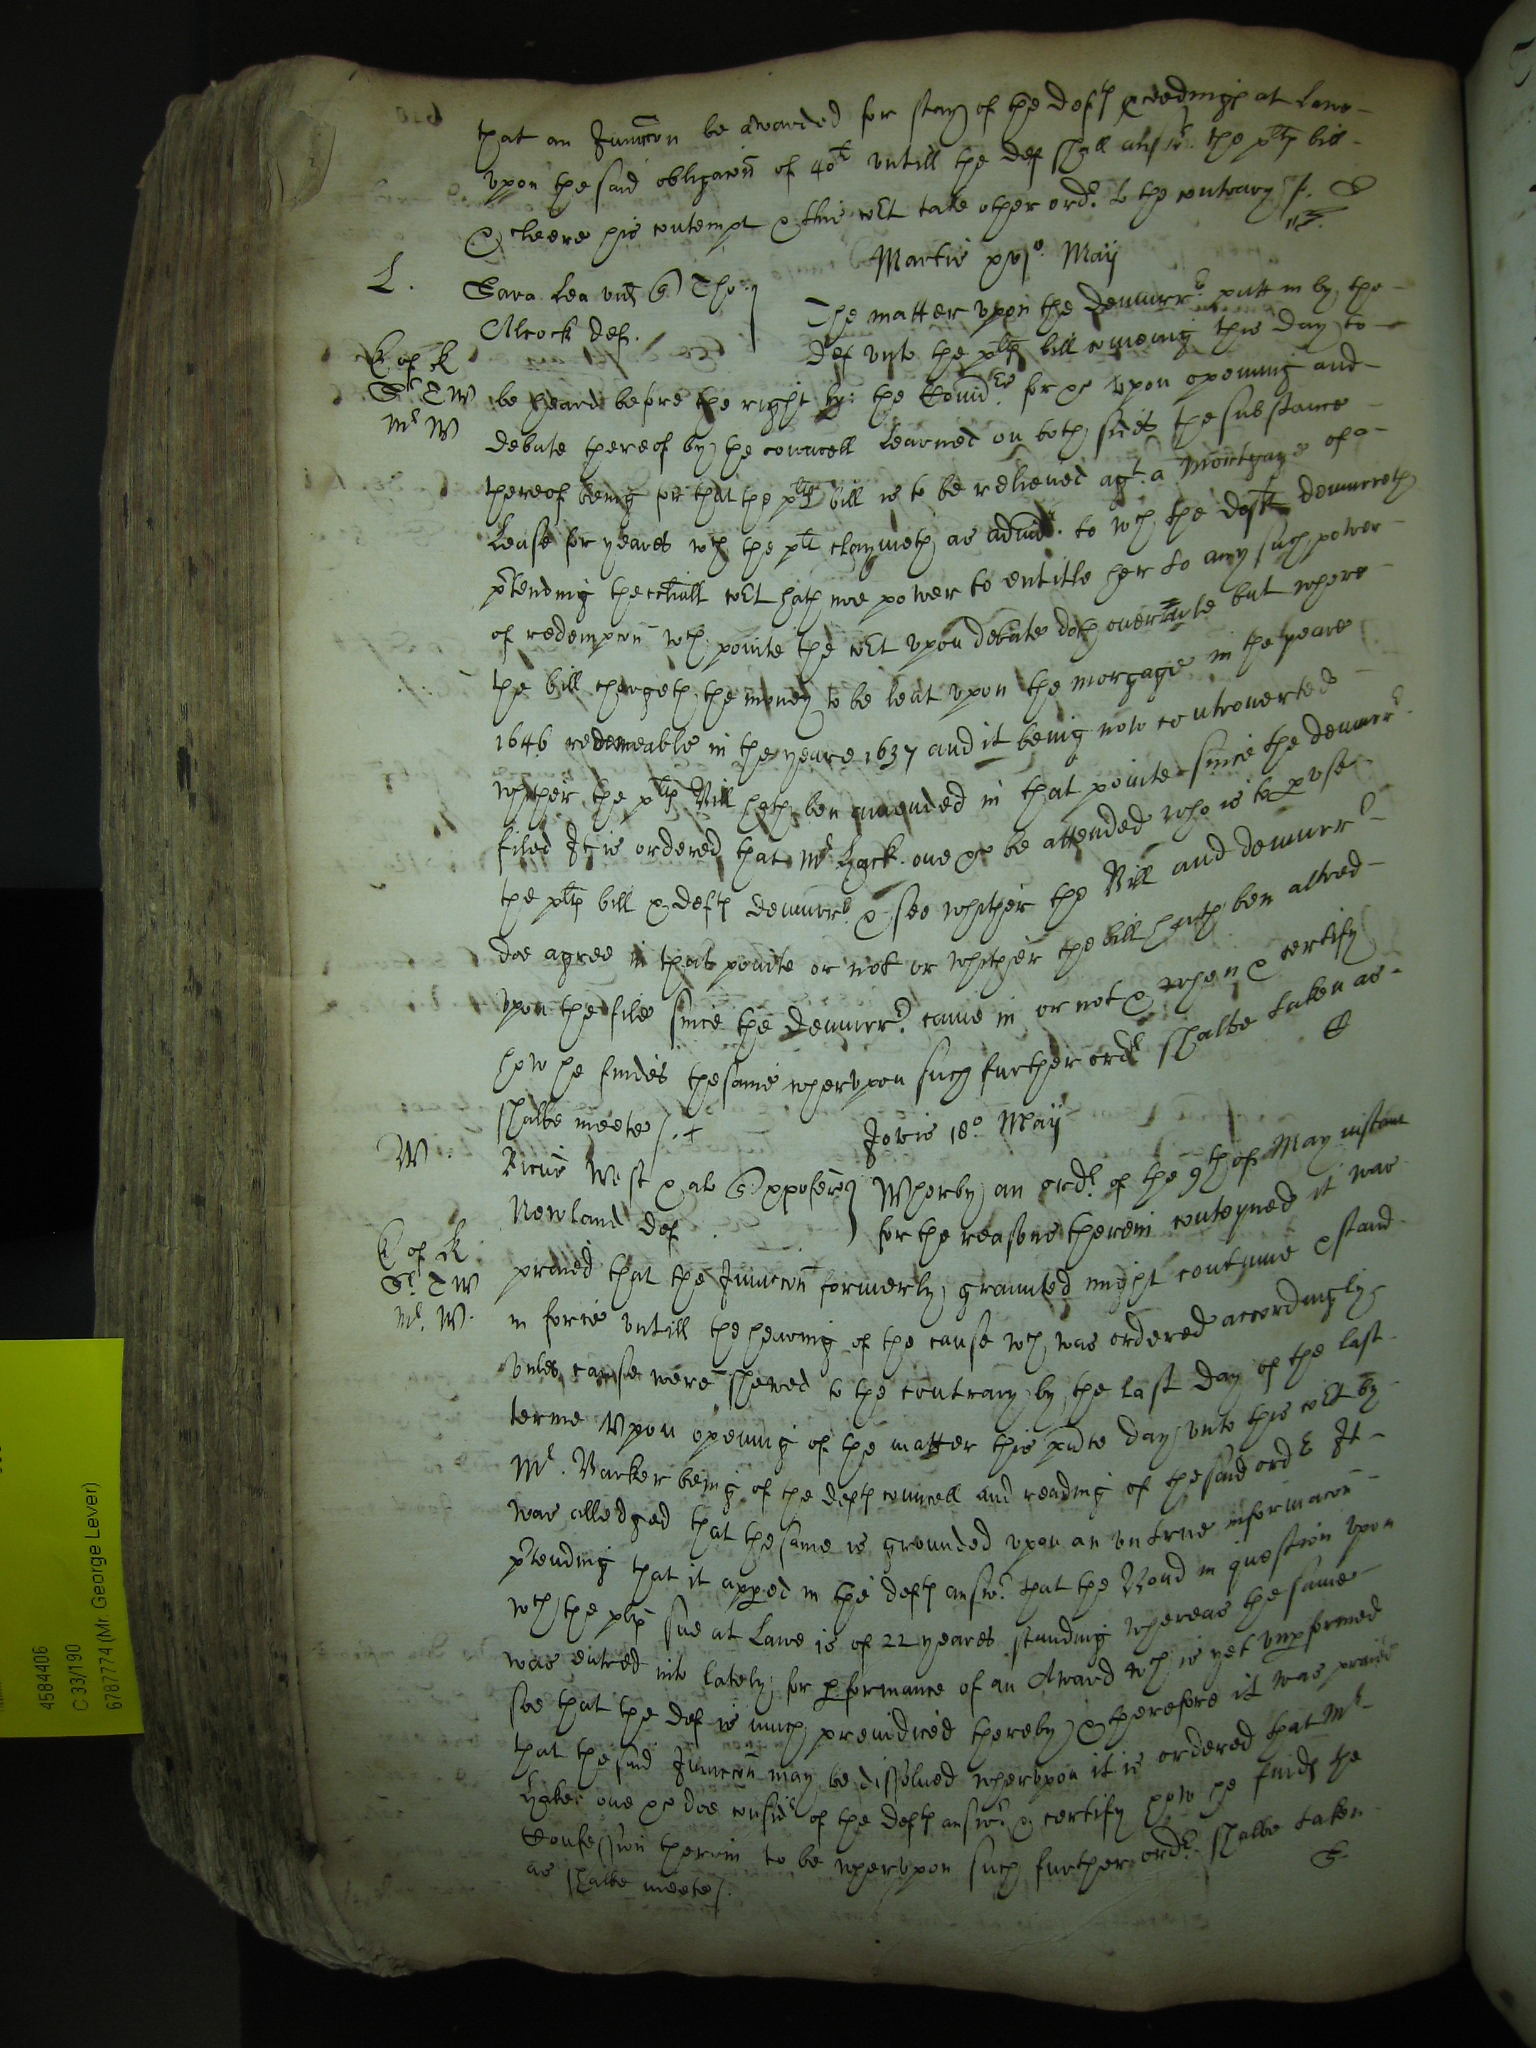 that an Iniuncc̄on be awarded for stay of the Defts p̱ceedings at Lawe
vpon the said obligac̄on of 40li vntill the def shall answr. the plts bill
& cleere his contempt & this co͠rt take other ordr. to the contrary
Martis xvjo. Maij
L.
Sara Lea vid
Alcock def.
The matter vpon the demurrr. putt in by the
def vnto the plts bill comeing this day to
be heard before the right ho: the Com̄idrs for &c vpon opening and
debate thereof by the councell Learned on both sides the substance
thereof being for that the plts bill is to be releiued agt. a Mortgage of a
Lease for yeares wch the plt claymeth as admx. to wch the deft demurreth
p̱tending the co͠rt hath noe power to entitle her to any such power
of redempc̄on wch pointe the co͠rt vpon debate doth ouerrule but where
the bill chargeth the money to be lent vpon the morgage in the yeare
1646 redemeable in the yeare 1637 and it being now controuerted
whither the plts Bill hath ben amended in that pointe since the demurrr.
filed It is ordered that Mr Hack. one &c be attended who is to p̱vse
the plts bill & defts demurrr. & see whither the Bill and demurrr.
doe agree in that pointe or not or whither the bill hath ben altred
vpon the file since the demurrr. came in or not & when & certify
how he findes the same wherevpon such further ordr shalbe taken as
shalbe meete
K of K
Sr. T W
Mr W
Iovis 18o Maij
W.
Ricus West & al
Newland def
Wherby an ordr. of the 9th of May instant
for the reasons therein conteyned it was
praied that the Iniuncc̄on formerly graunted might continue & stand
in force vntill the hearing of the cause wch was ordered accordingly
vnles cause were shewed to the contrary by the last day of the last
terme Vpon opening of the matter this p̱nte day vnto this co͠rt by
Mr. Barker being of the defts councell and reading of the said ordr It
was alledged that the same is grounded vpon an vntrue informac̄on
p̱tending that it app̱ed in the defts answr. that the Bond in question vpon
wch the plts sue at Lawe is of 22 yeares standing whereas the same
was entred into lately for p̱formance of an Award wch is yet vnp̱formed
soe that the def is much preiudiced thereby & therefore it was praied
that the said Iniuncc̄on may be dissolued wherevpon it is ordered that Mr
one &c doe considr of the defts answr. & certify how he finds the
Confession therein to be wherevpon such further ordr. shalbe taken
as shalbe meete
K of K
Sr. T W
Mr. W.
4584406
C 33/190
6787774 (Mr. George Lever)